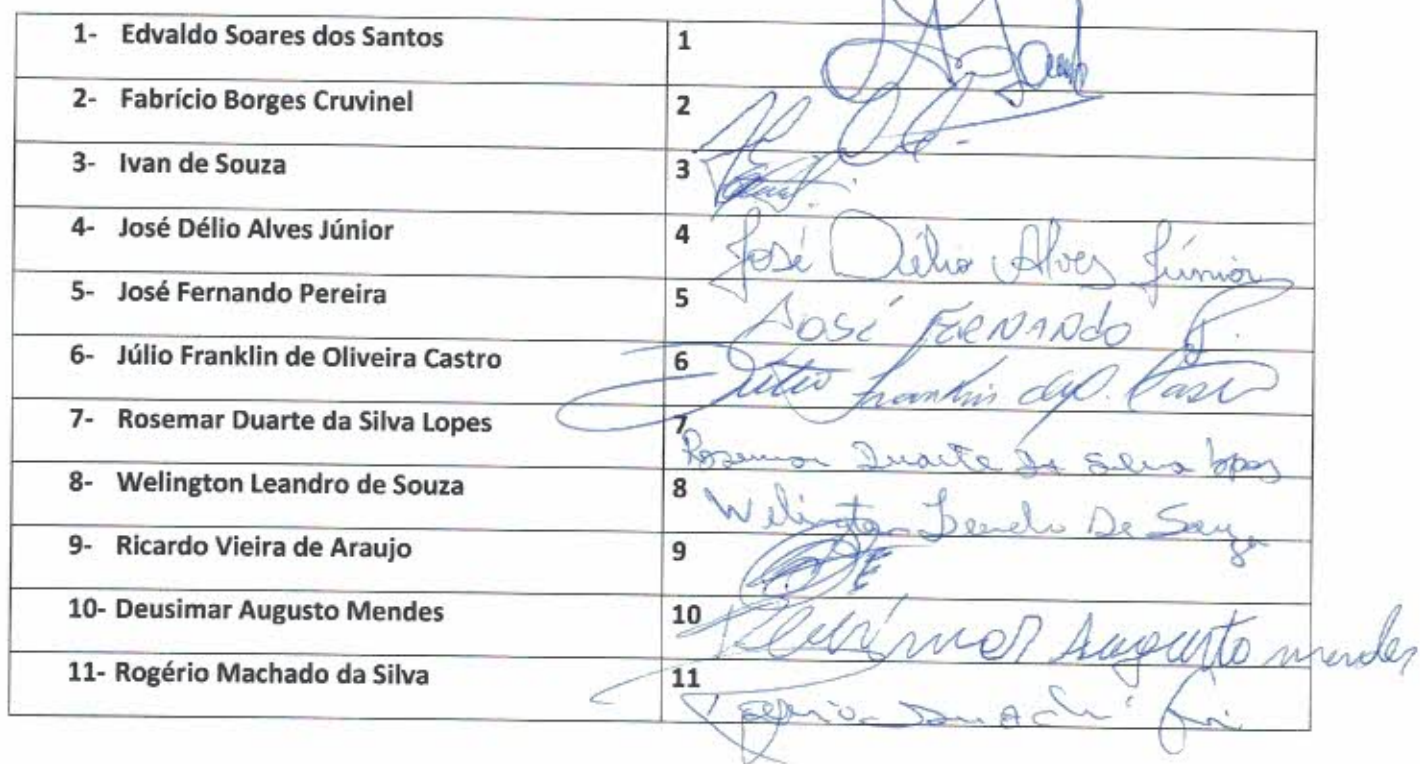 1- Edvaldo Soares dos Santos 1
2- Fabrício Borges Cruvinel 2
3- Ivan de Souza 3
4- José Délio Alves Júnior 4 José Délio Alves Júnior
5- José Fernando Pereira 5 José FERNANDO P.
6- Júlio Franklin de Oliveira Castro 6 Júlio Franklin de O. Castro
7- Rosemar Duarte da Silva Lopes 7 Rosemar Duarte da Silva Lopes
8- Welington Leandro de Souza 8 Welington Leandro De Souza
9- Ricardo Vieira de Araujo 9
10- Deusimar Augusto Mendes 10 Deusimar Augusto mendes
11- Rogério Machado da Silva 11